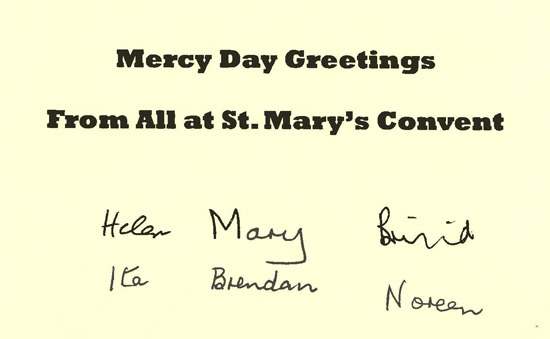 Mercy Day Greetings
From All at St. Mary's Convent
Helen Mary Brinid
Ita Brendan Noreen